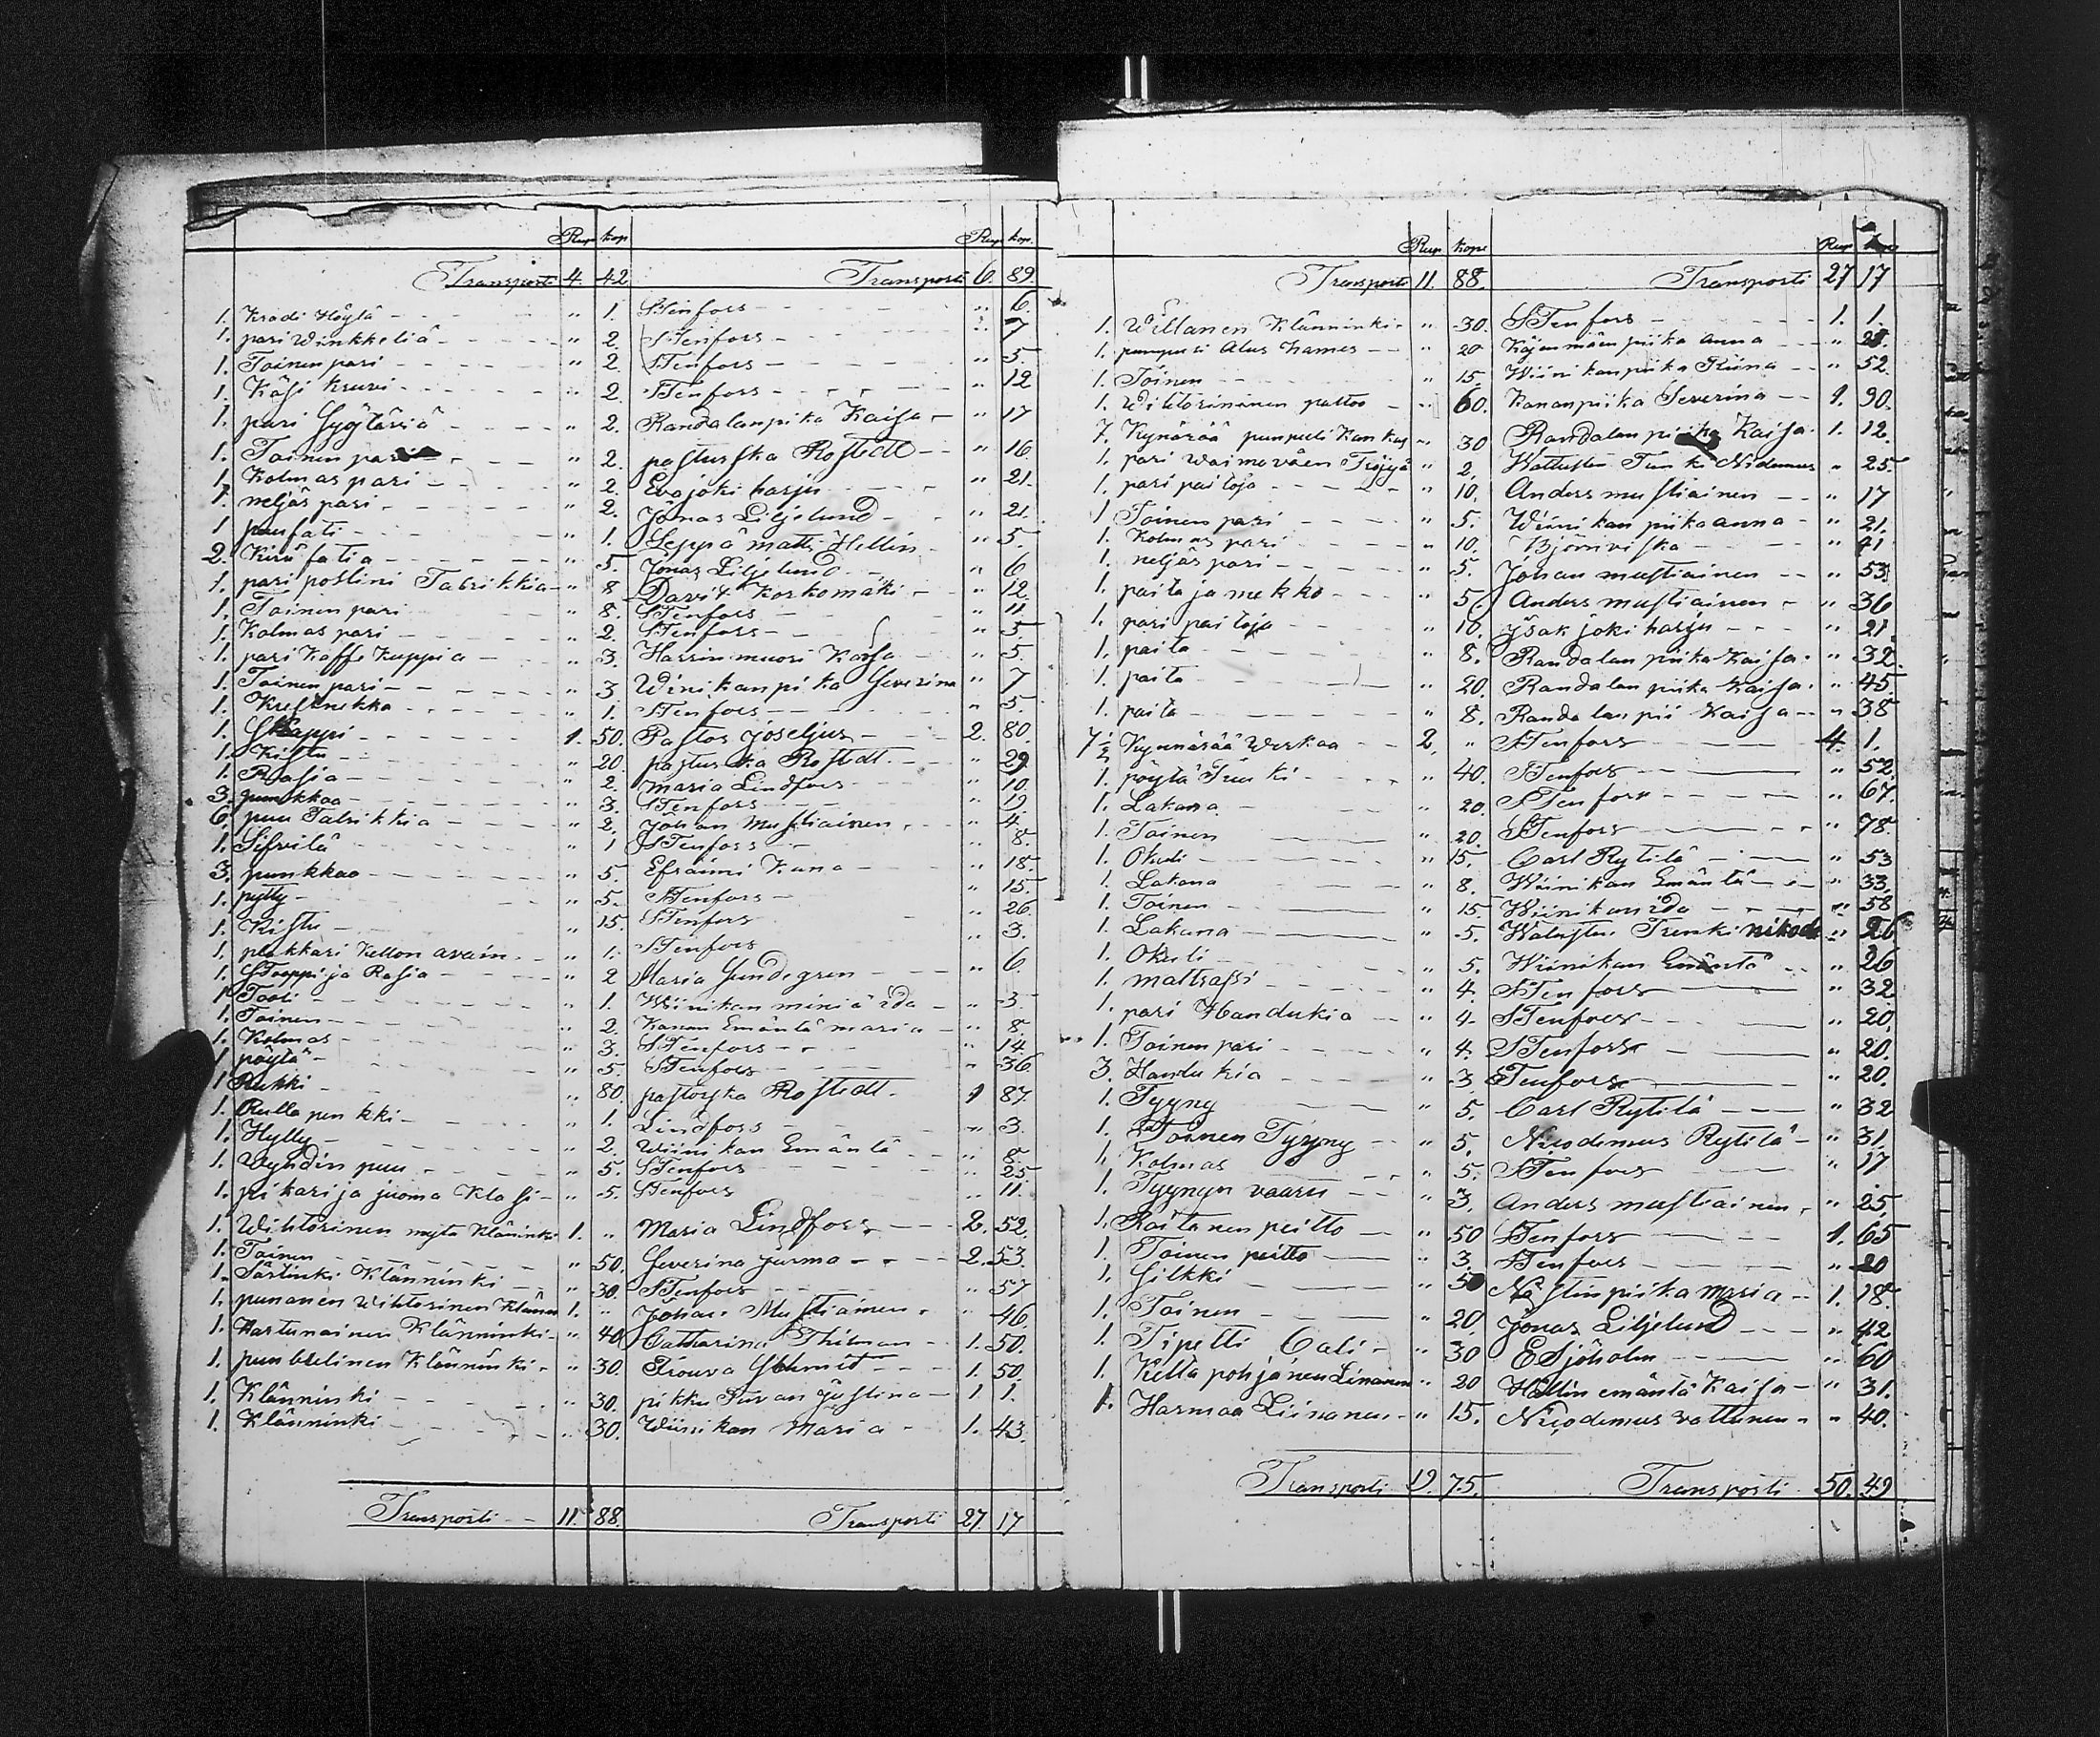 Rup kop Rup kop.
Transporti 4. 42 Transporti 6. 89.
1. Kradi Höylä " 1. STenfors " 6.
1. pari Winkkeliä " 2. STenfors " 7
1. Toinen pari " 2. STenfors " 5
1. Käsi kruvi " 2. STenfors " 12
1. pari Syötäviä " 2. Randalanpika Kaisa " 17
1. Toinen pari " 2. pasturska Rostedt " 16.
1 Kolmas pari " 2. Eva jokiharju " 21.
1. neljäs pari " 2. Jonas Liljelund " 21.
1 puufati " 1. Leppä matti Hellin " 5.
2. Kivi fatia " 5. Jonas Liljelund " 6
1. pari poslini Talrikkia " 8 Davit Korkomäki " 12.
1. Toinen pari " 8. STenfors " 11
1. Kolmas pari " 2. STenfors " 5.
1. pari Kaffe Kuppia " 3. Harrin muori Kaisa " 5.
1. Toinen pari " 3 Winikanpika Severina " 7
1. Kresknekka " 1. STenfors " 5.
1. Skaappi 1. 50. Pastor Joseljus 2. 80.
1. Kistu " 20. pasturska Rostedt " 29
1. Rasia " 2. Maria Lindfors " 10.
3. punkkaa " 3. STenfors " 19.
6. puu Talrikkia " 2. Johan Mustiainen " 4.
1. Sifvilä " 1 STenfors " 8.
3. punkkaa " 5. Efraimi Kana " 18.
1. pytty " 5. STenfors " 15.
1. Kistu " 15. STenfors " 26.
1. plakkari Kellon avain " 1. STenfors " 3.
1. STooppi ja Rasia " 2 Maria Sundegren " 6.
1. Tooli " 1. Wiinikan miniä ida " 3.
1. Toinen " 2. Kanan Emäntä maria " 8.
1. Kolmas " 3. STenfors " 14
1 pöytä " 5. STenfors " 36.
1 Rukki " 80. pastorska Rostedt 1 87.
1. Rulla penkki " 1. Lindfors " 3.
1. Hylly " 2. Wiinikan Emäntä " 8.
1. Wyhdin puu " 5. STenfors " 25.
1. pikari ja juoma Klasi " 5. STenfors " 11.
1. Wihtorinen myta Kläninki 1. " Maria Lindfors 2. 52.
1. Toinen " 50. Severina jurma 2. 53.
1. Särtinki Klänninki " 30. STenfors " 57
1. punanen Wihtorinen Klänin 1. " Johan Mustiainen " 46.
1. Kartunainen Klänninki " 40. Catharina Thilman 1. 50.
1. pumblelinen Klänninki " 30. Frouva Schmit 1. 50.
1. Klänninki " 30. pikku Turan justina 1 1.
1. Klänninki " 30. Wiinikan Maria 1. 43.
Transporti 11. 88. Transporti 27. 17
Rup. kope Rup.
Transporti 11. 88. Transporti 27 17
1. Willanen Klänninki " 30. STenfors 1. 1.
1. pumpuli Alus hames " 20 Käjenmäen piika Anna "
1. Toinen " 15. Wiinikanpiika Riina " 52.
1. Wihtorininen paltoo " 60. Kananpiika Severina 1. 90.
7. Kynärää pumpuli Kankas " 30 Randalan piika Kaisa 1. 12.
1. pari waimoväen Tröyjä " 2. Wattusten Tunki Nidemus " 25.
1. pari paitoja " 10. Anders mustiainen " 17
1 Toinen pari " 5. Wiinikan piika anna " 21.
1. Kolmas pari " 10. Björniska " 41
1. neljäs pari " 5. Johan mustiainen " 53.
1. paita ja mekko " 5. Anders mustiainen " 36
1. pari paitoja " 10. Ysak jokiharju " 21
1. paita " 8. Randalan piika Kaisa " 32.
1. paita " 20. Randalan piika Kaisa " 45.
1. paita " 8. Randalan pii Kaisa " 38
7 ½ Kynnärää Werkaa 2. " STenfors 4. 1.
1. pöytä Tuuki " 40. STenfors " 52.
1. Lakana " 20. STenfors " 67.
1. Toinen " 20. STenfors " 78.
1. Okuli " 15. Carl Rytilä " 53
1. Lakana " 8. Wiinikan Emäntä " 33.
1. Toinen " 15. Wiinikan ida " 58
1. Lakana " 5. Watusten Trenki nikode " 26
1. Okuli " 5. Wiinikan Emäntä " 26
1. mattrassi " 4. STenfors " 32
1. pari Handukia " 4. STenfors " 20.
1. Toinen pari " 4. STenfors " 20.
3. Handukia " 3 STenfors " 20.
1. Tyyny " 5. Carl Rytilä " 32
1. Toinen Tyyny " 5. Nicodemus Rytilä " 31.
1. Kolmas " 5. STenfors " 17
1. Tyynyn vaaru " 3. Anders mustiainen " 25.
1. Raitanen peitto " 50 STenfors 1. 65
1. Toinen peitto " 3. STenfors " 20
1. Silkki " 50 Nästin piika Maria 1. 18.
1. Toinen " 20. Jonas Liljelund " 42
1. Tipetti Cali " 30 ESjöholm " 60
1. Kella pohjanen Linanen " 20 Hallin emäntä Kaisa " 31.
1. Harmaa Liinanen " 15. Nicodemus vattunen " 40.
Transporti 19. 75. Transporti 50. 49